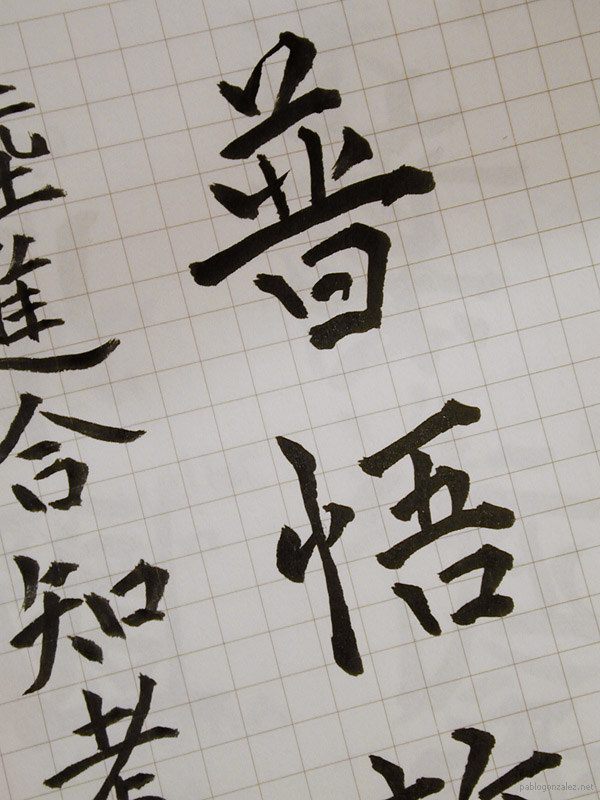 普悟
進合知者
pablogonzalez.net